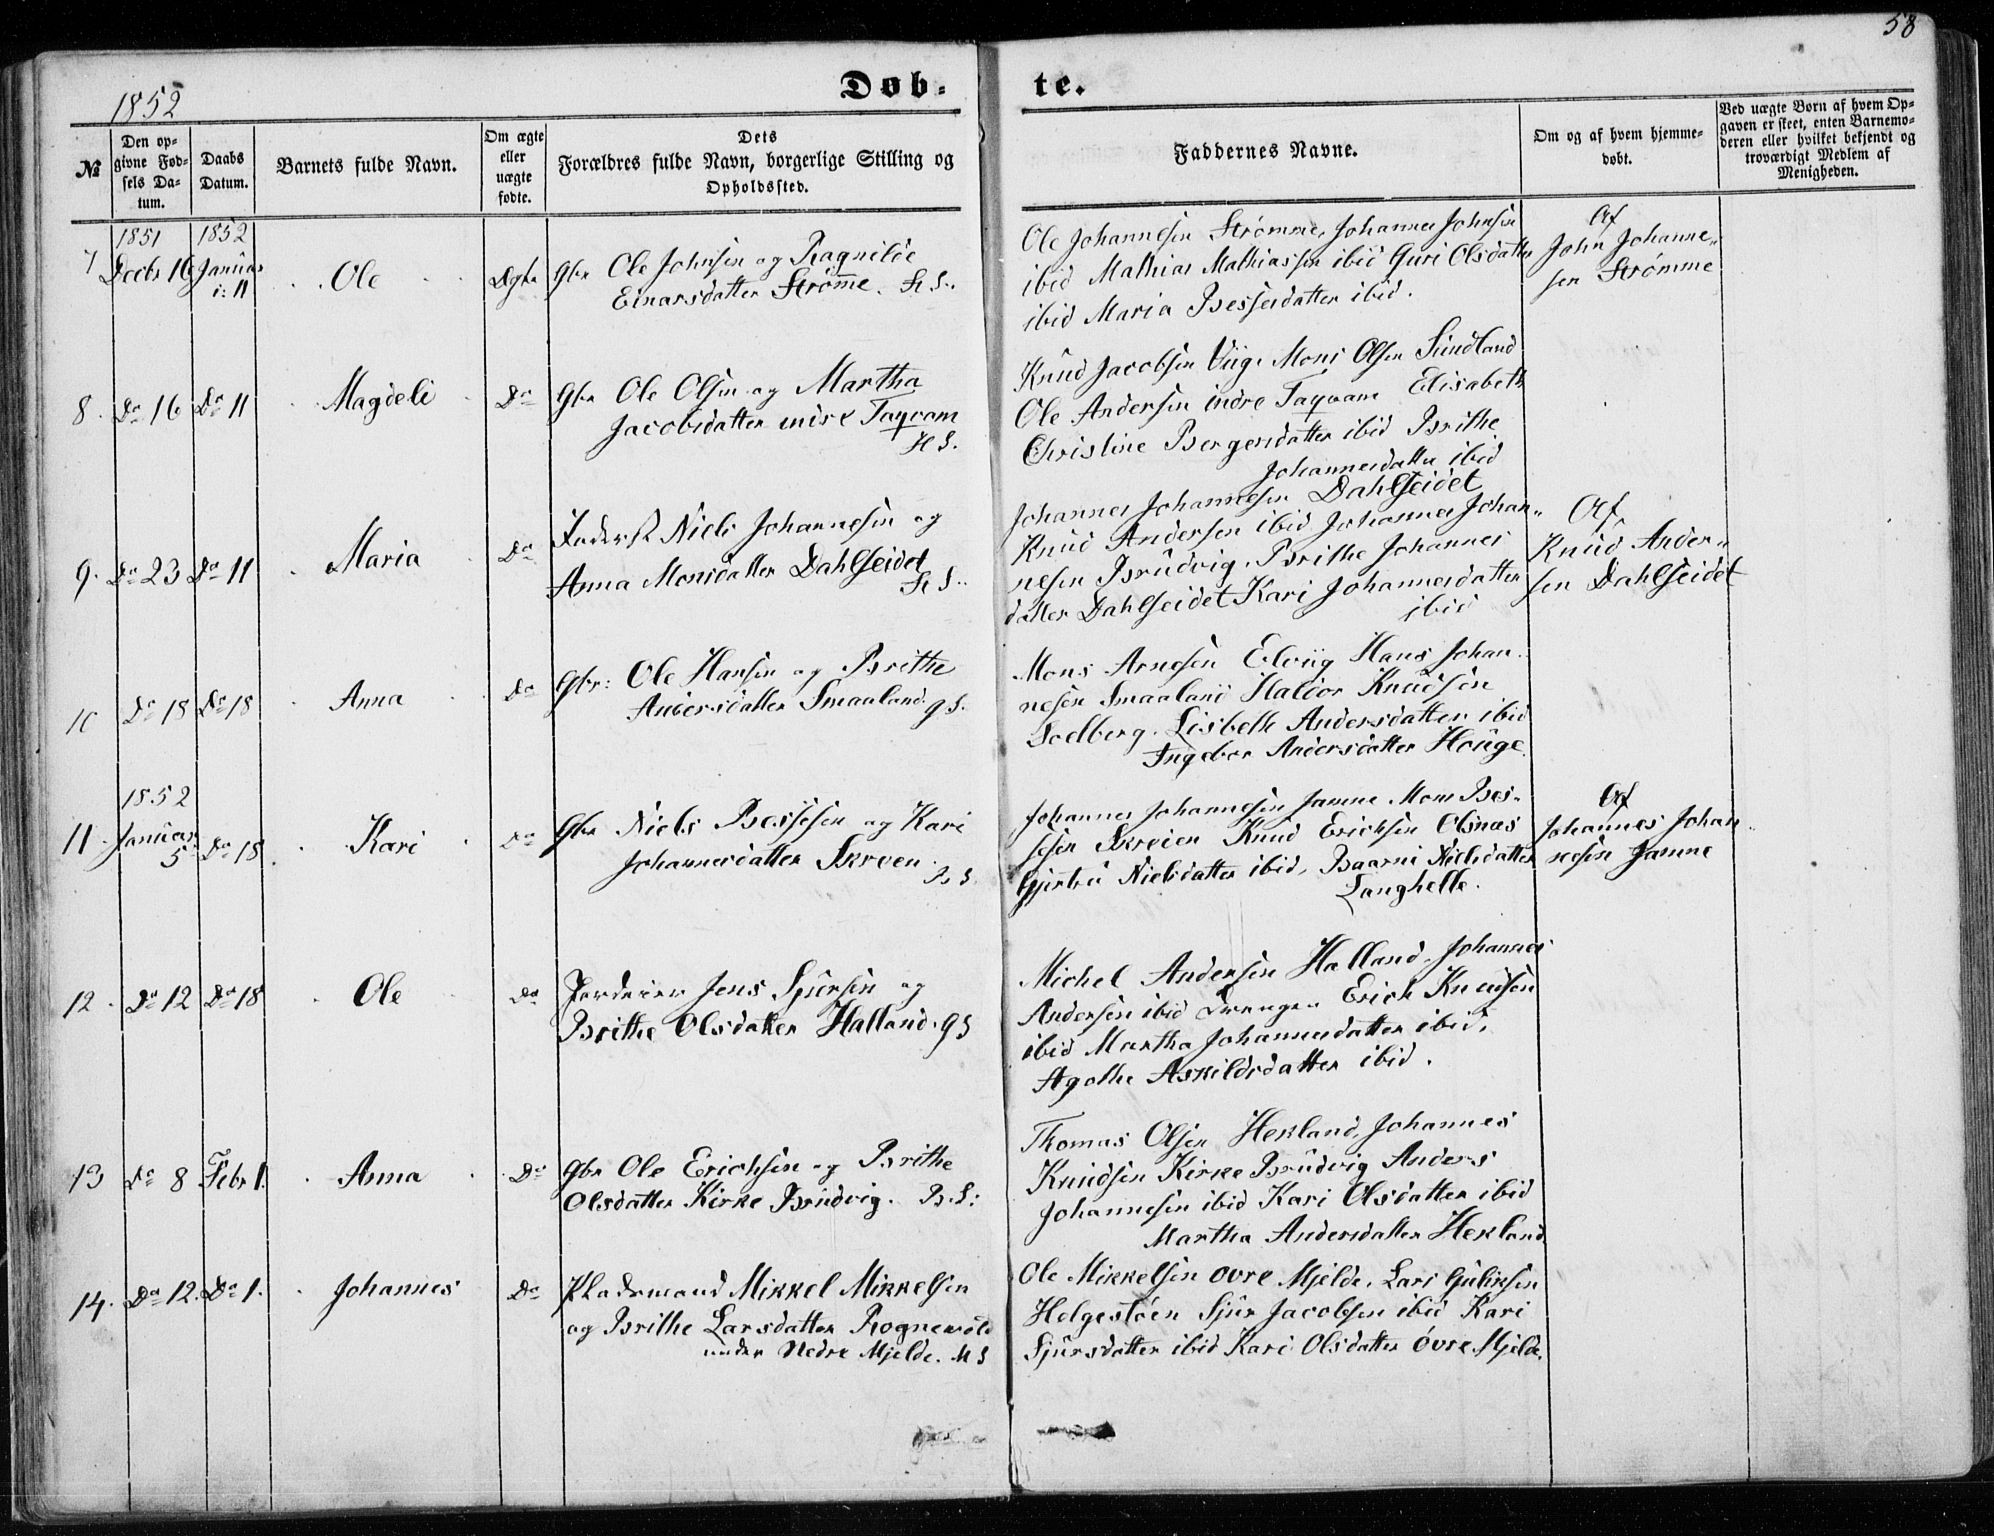 58
1852
Døb-
te.
№
Den op-
givne Fød-
sels Da-
tum.
Daabs
Datum.
Barnets fulde Navn.
Om ægte
eller
uægte
fødte.
Dets
Forældres fulde Navn, borgerlige Stilling og
Opholdssted.
Faddernes Navne.
Om og af hvem hjemme-
døbt.
Ved uægte Børn af hvem Op-
gaven er skeet, enten Barnemo-
deren eller hvilket bekjendt og
troværdigt Medlem af
Menigheden.
7
1851
Decbr 16
1852
Januar
i: 11
Ole
Gbr Ole Johnsen og Ragnilde
Einarsdatter Strømme. H S.
Ole Johannesen Strømme, Johannes Johnsen
ibid Mathias Mathiassen ibid Guri Olsdatter
ibid Maria Bessesdatter ibid.
Af
John Johanne-
sen Strømme
8.
Do 16
Do 11
Magdeli
Do
Gbr Ole Olsen og Martha
Jacobsdatter indre Taqvam
H S.
Knud Jacobsen Viig. Mons Olsen Sundland
Ole Andersen indre Taqvam Elisabeth
Christine Bergersdatter ibid Brithe
Johannesdatter ibid
9.
Do 23
Do 11
Maria
Do
Inderst Niels Johannesen og
Anna Monsdatter Dahlseidet
H S.
Johannes Johannesen Dahlseidet
Knud Andersen ibid Johannes Johan-
nesen Brudvig. Brithe Johannes
datter Dahlseidet Kari Johannesdatter
ibid
Af
Knud Ander-
sen Dahlseidet
10
Do 18
Do 18
Anna
Do
Gbr: Ole Hansen og Brithe
Andersdatter Smaaland. G S.
Mons Arnesen Elviig Hans Johan-
nesen Smaaland Haldor Knudsen
Sodberg. Lisbeth Andersdatter ibid
Ingebor Andersdatter Houge
11.
1852
Januar
5
Do 18
Kari
Do
Gbr Niels Bessesen og Kari
Johannesdatter Skreen.
B S
Johannes Johannesen Jamne Mons Bes-
sesen Skreien Knud Erichsen Olsnæs
Gjertru Nielsdatter ibid, Baarni Nielsdatter
Langhelle.
Af
Johannes Johan-
nesen Jamne
12.
Do 12
Do 18
Ole
Do
Jens Sjursen og
Brithe Olsdatter Halland. G S
Michel Andersen Halland. Johannes
Andersen ibid Drengen Erich Knudsen
ibid Martha Johannesdatter ibid.
Agothe Askildsdatter ibid.
13
Do 8
Febr 1.
Anna
Do
Gbr Ole Erichsen og Brithe
Olsdatter Kirke Brudvig. B. S:
Thomas Olsen Hekland, Johannes
Knudsen Kirke Brudvig Anders
Johannesen ibid Kari Olsdatter ibid
Martha Andersdatter Hekland.
14.
Do 12.
Do 1.
Johannes
Do
Pladsmand Mikkel Mikkelsen
og Brithe Larsdatter Rognevold
under Nedre Mjelde. M S
Ole Mikkelsen øvre Mjelde. Lars Guliksen
Helgestøen Sjur Jacobsen ibid Kari
Sjursdatter ibid Kari Olsdatter øvre Mjelde.